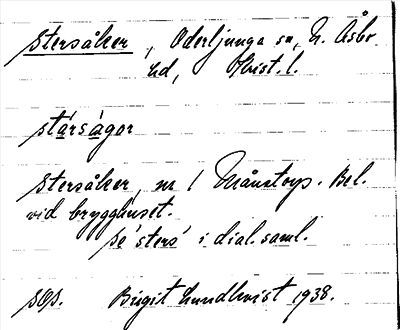 Stersåker, Oderljunga sn, N. Åsbo
hd, Krist. l.
stársågor
Stersåker, nr 1 Månstorp. Bel.
vid brygghuset.
se 'sters' i dial. saml.
sgs. Birgit Lundkvist 1938.